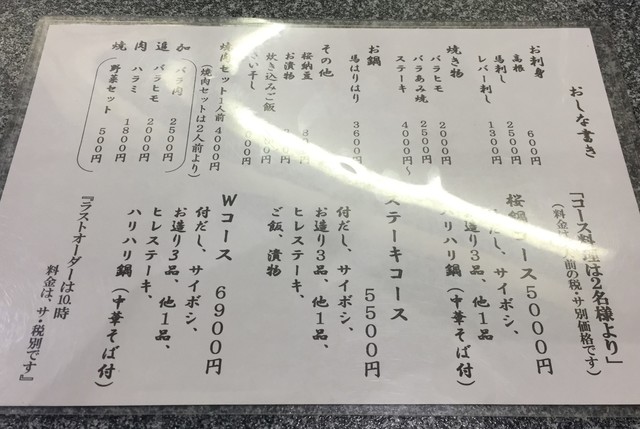 おしな書き
お刺身
高根 600円
馬刺し 2500円
レバー刺し 1300円
焼き物
バラヒモ 2000円
バラあみ焼 2500円
ステーキ 4000円～
お鍋
馬はりはり 3600円
その他
桜納豆
お漬物
炊き込みご飯
焼肉セット1人前 4000円
(焼肉セットは2人前より)
焼肉追加
バラ肉 2500円
バラヒモ 2000円
ハラミ 1800円
野菜セット 500円
「コース料理は2名様より」
桜鍋コース 5000円
付だし、サイボシ、
お造り3品、他1品、
ハリハリ鍋(中華そば付)
ステーキコース 5500円
付だし、サイボシ、
お造り3品、他1品、
ヒレステーキ、
ご飯、漬物
Wコース 6900円
付だし、サイボシ、
お造り3品、他1品、
ヒレステーキ、
ハリハリ鍋(中華そば付)
『ラストオーダーは10.時
料金は、サ・税別です』